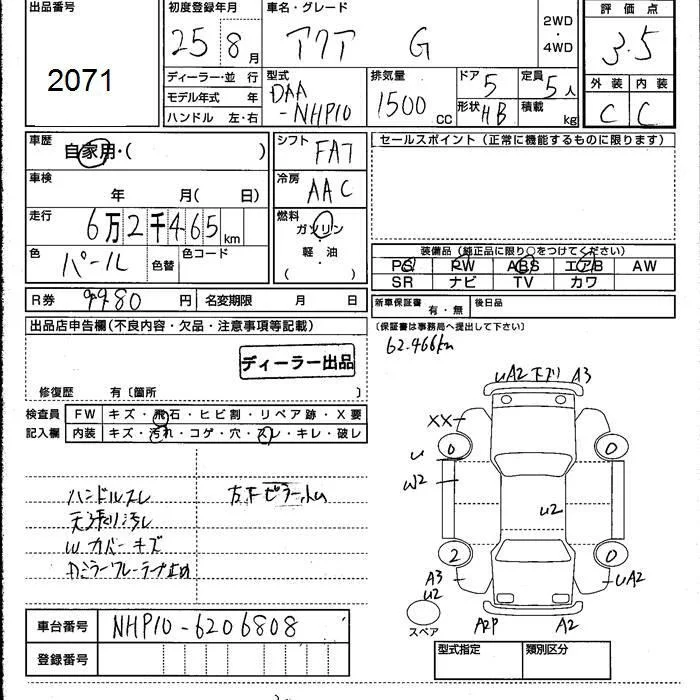 出品番号
2071
初度登録年月
25 8月
車名・グレード
アクア G
2WD
・
4WD
評価点
3.5
ディーラー・並 行
モデル年式 年
ハンドル 左・右
型式
DAA
-NHP10
排気量
1500 CC
ドア 5
形状 HB
定員 5人
積載 kg
外装 内装
C C
車歴
自家用・( )
シフト
FAT
車検
年 月( 日)
冷房
AAC
走行
6万2千465km
燃料
ガソリン
・
軽・油
( )
色
パール
色替
色コード
R券 9980円
名変期限 月 日
セールスポイント (正常に機能するものに限ります)
装備品 (純正品に限り○をつけてください)
PS RW ABS エアB AW
SR ナビ TV カワ
新車保証書 有・無
後日品
(保証書は事務局へ提出して下さい)
62.466km
出品店申告欄(不良内容・欠品・注意事項等記載)
ディーラー出品
修復歴 有〔箇所 〕
検査員
記入欄
FW キズ・飛石・ヒビ割・リペア跡・X要
内装 キズ・汚れ・コゲ・穴・スレ・キレ・破レ
ハンドルスレ
天張り汚レ
W カバーキズ
左下ピラー
uA2 下ズリ A3
XX
u
0
0
W2
u2
2
0
A3
u2
uA2
スペア
A2P
A2
車台番号 NHP10-6206808
登録番号
型式指定 類別区分